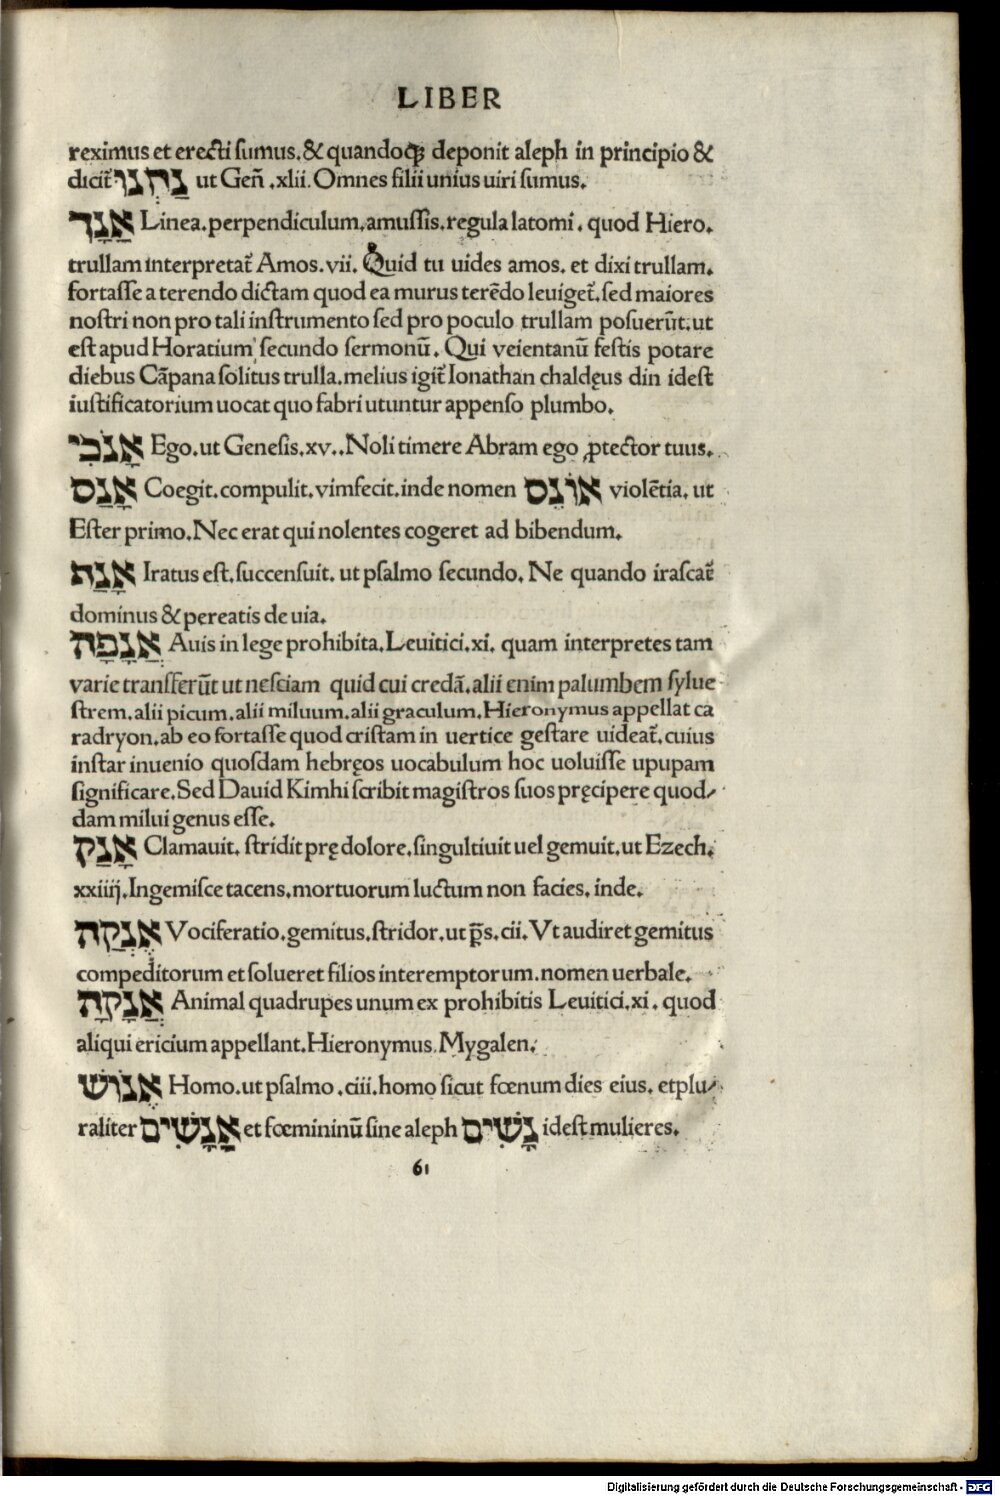 LIBER
reximus et erecti sumus.& quandoqꝫ deponit aleph in principio &
dicit᷑ נַחְנוּ ut Geñ .xlii. Omnes filii unius uiri sumus.
אֲנָךְ Linea.perpendiculum.amussis.regula latomi. quod Hiero.
trullam interpretat᷑ Amos.vii. Quid tu uides amos. et dixi trullam.
fortasse a terendo dictam quod ea murus terēdo leuiget᷑.sed maiores
nostri non pro tali instrumento sed pro poculo trullam posuerūt.ut
est apud Horatium secundo sermonū. Qui veientanū festis potare
diebus Cāpana solitus trulla.melius igit᷑ Ionathan chaldęus din idest
iustificatorium uocat quo fabri utuntur appenso plumbo.
אָנֹכִי Ego.ut Genesis.xv..Noli timere Abram ego ꝓtector tuus.
אָנַס Coegit.compulit.vimfecit.inde nomen אוֹנֵס violētia. ut
Ester primo.Nec erat qui nolentes cogeret ad bibendum.
אָנַת Iratus est.succensuit. ut psalmo secundo. Ne quando irascat᷑
dominus & pereatis de uia.
אֲנָפָה Auis in lege prohibita.Leuitici.xi. quam interpretes tam
varie transferūt ut nesciam quid cui credā.alii enim palumbem sylue
strem.alii picum.alii miluum.alii graculum.Hieronymus appellat ca
radryon.ab eo fortasse quod cristam in uertice gestare uideat᷑.cuius
instar inuenio quosdam hebręos uocabulum hoc uoluisse upupam
significare.Sed Dauid Kimhi scribit magistros suos pręcipere quod⸗
dam milui genus esse.
אָנַק Clamauit. stridit prę dolore.singultiuit uel gemuit.ut Ezech.
xxiiij.Ingemisce tacens.mortuorum luctum non facies. inde.
אֶנְקַה Vociferatio.gemitus.stridor.ut p̄s.cii.Vt audiret gemitus
compeditorum et solueret filios interemptorum.nomen uerbale.
אֲנָקָה Animal quadrupes unum ex prohibitis Leuitici.xi. quod
aliqui ericium appellant.Hieronymus.Mygalen.
אֱנוֹשׁ Homo.ut psalmo .ciii.homo sicut fœnum dies eius. etplu⸗
raliter אֲנָשִׁים et fœmininū sine aleph נָשִׁים idest mulieres.
61
Digitalisierung gefördert durch die Deutsche Forschungsgemeinschaft - DFG